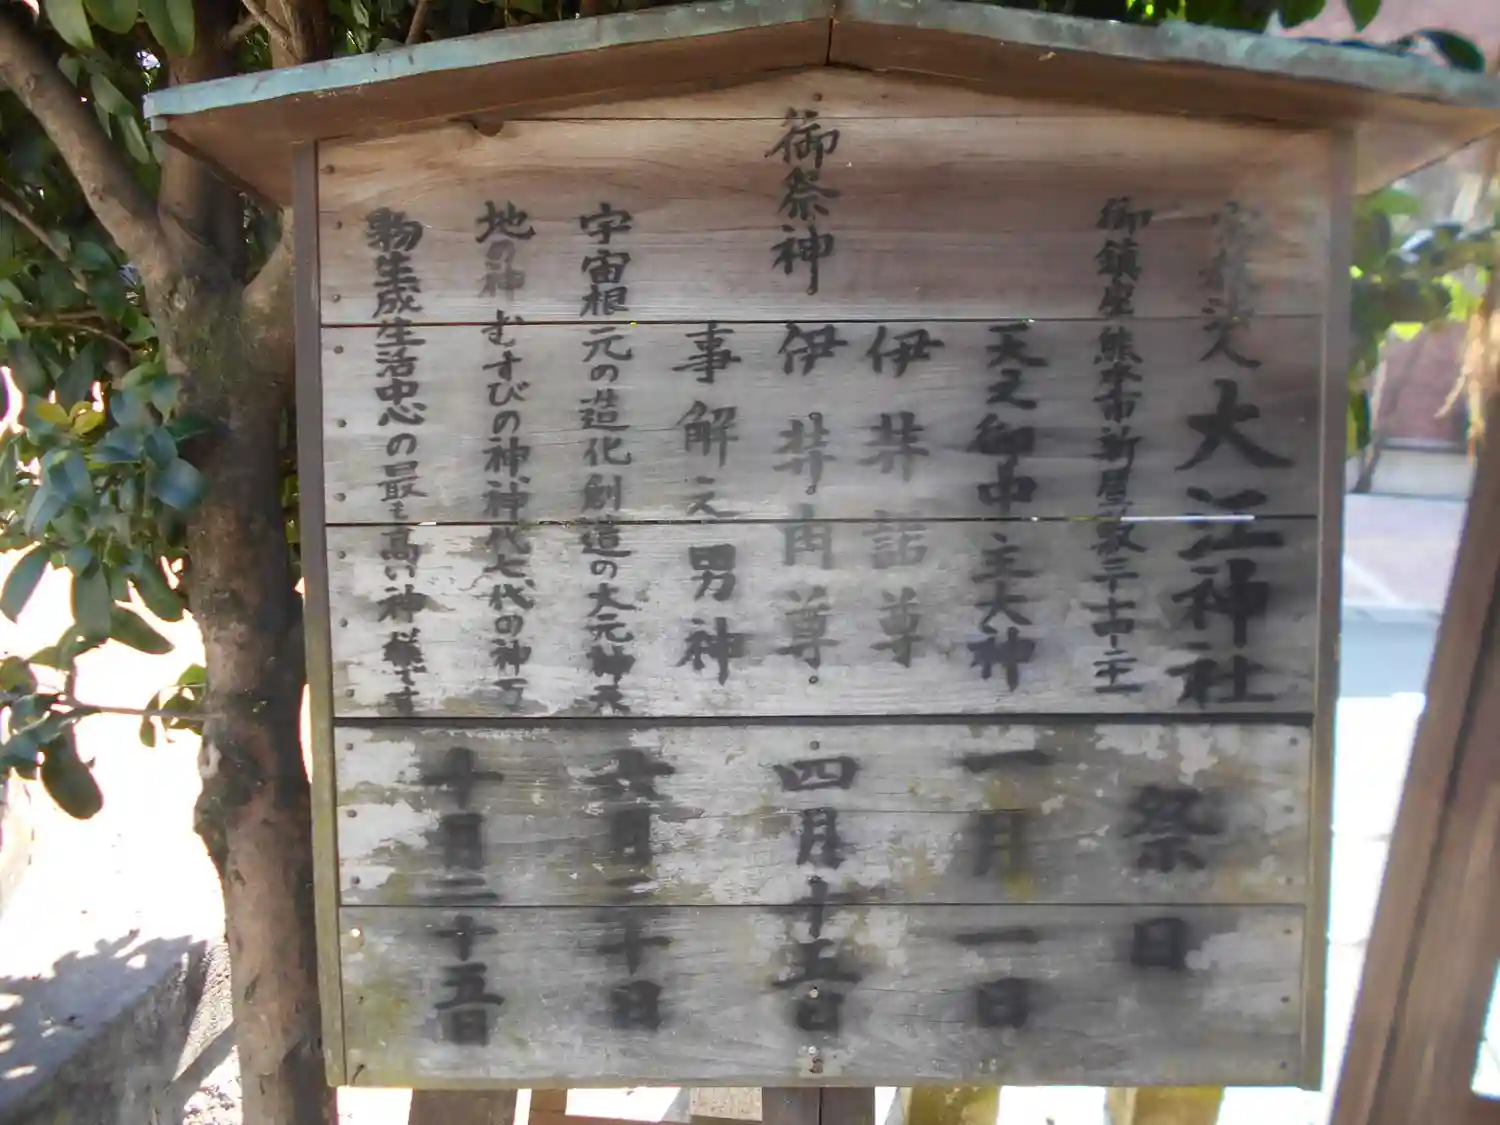 宗教法人 大江神社
御鎮座熊本市新屋敷三丁目
天之御中主大神
伊弉諾尊
御祭神 伊弉冉尊
事解之男神
宇宙根元の造化創造の大元神天
地の神むすびの神、神代七代の神
物生成生活中心の最も高い神様です
祭日
一月一日
四月十五日
六月二十日
十月二十五日